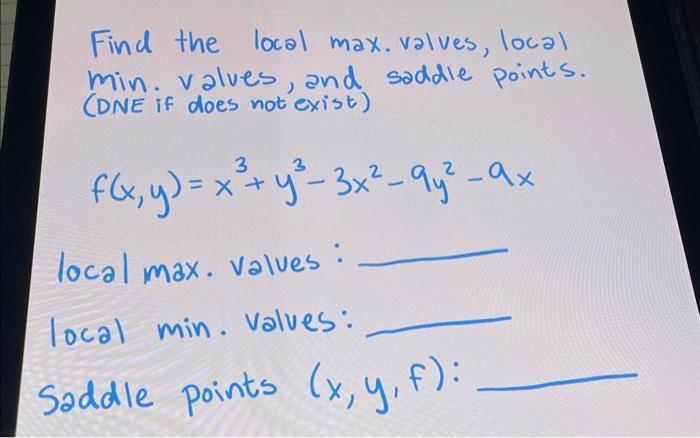 Find the local max. values, local
min. values, and saddle points.
(DNE if does not exist)
f(x,y) = x³ + y³ - 3x² - 9y² - 9x
local max. values :
local min. values:
Saddle points (x, y, f):